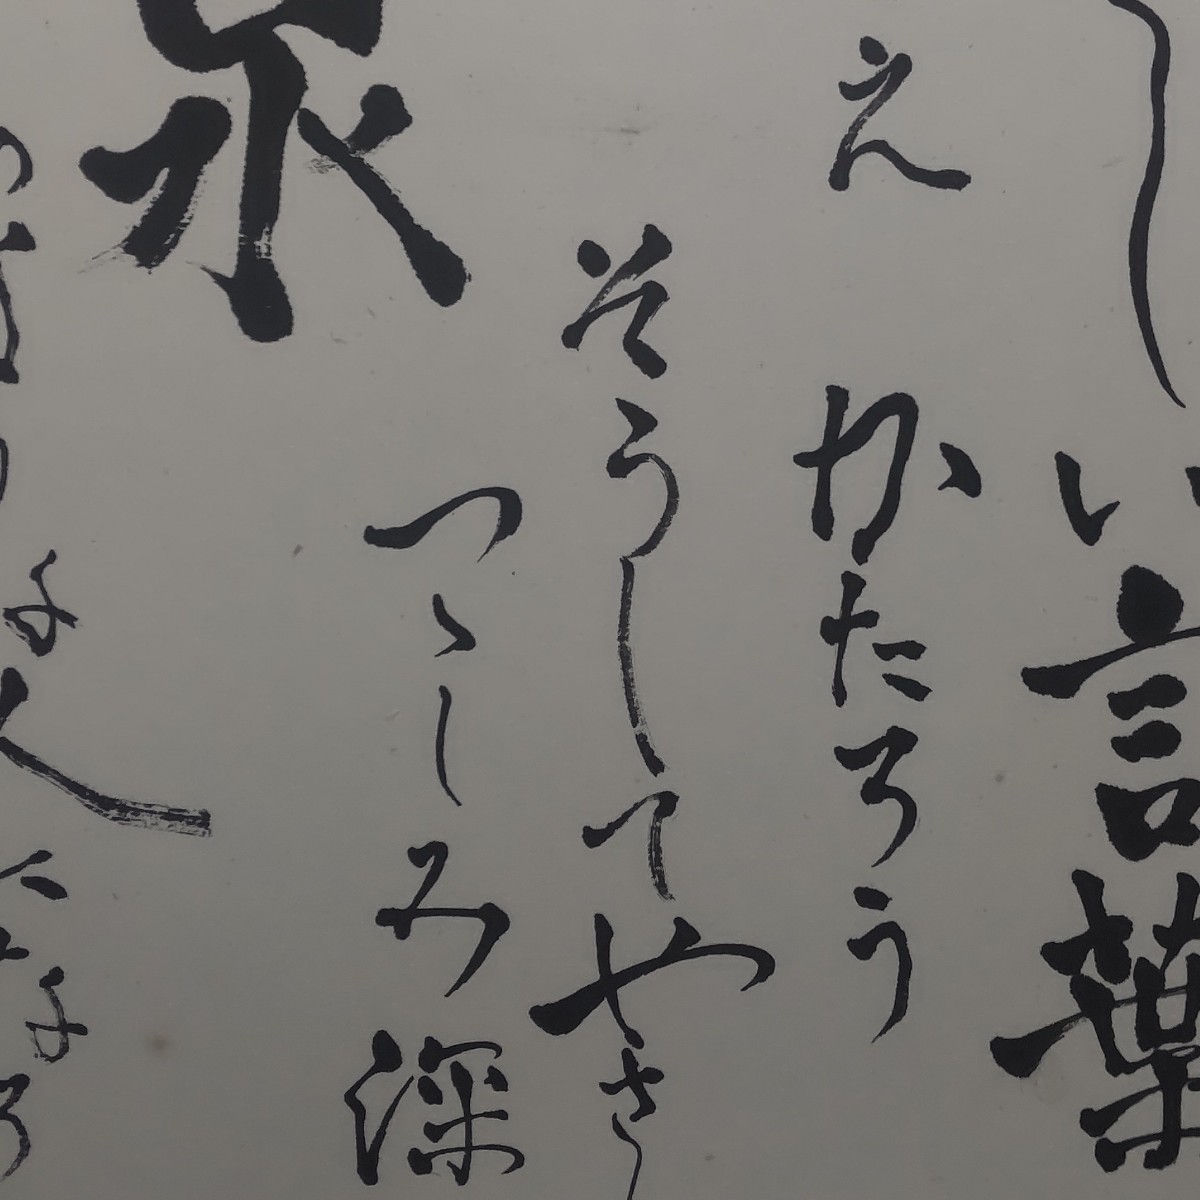 し い言葉
え かたろう
そうしてやさ
つゝしみ深
泉